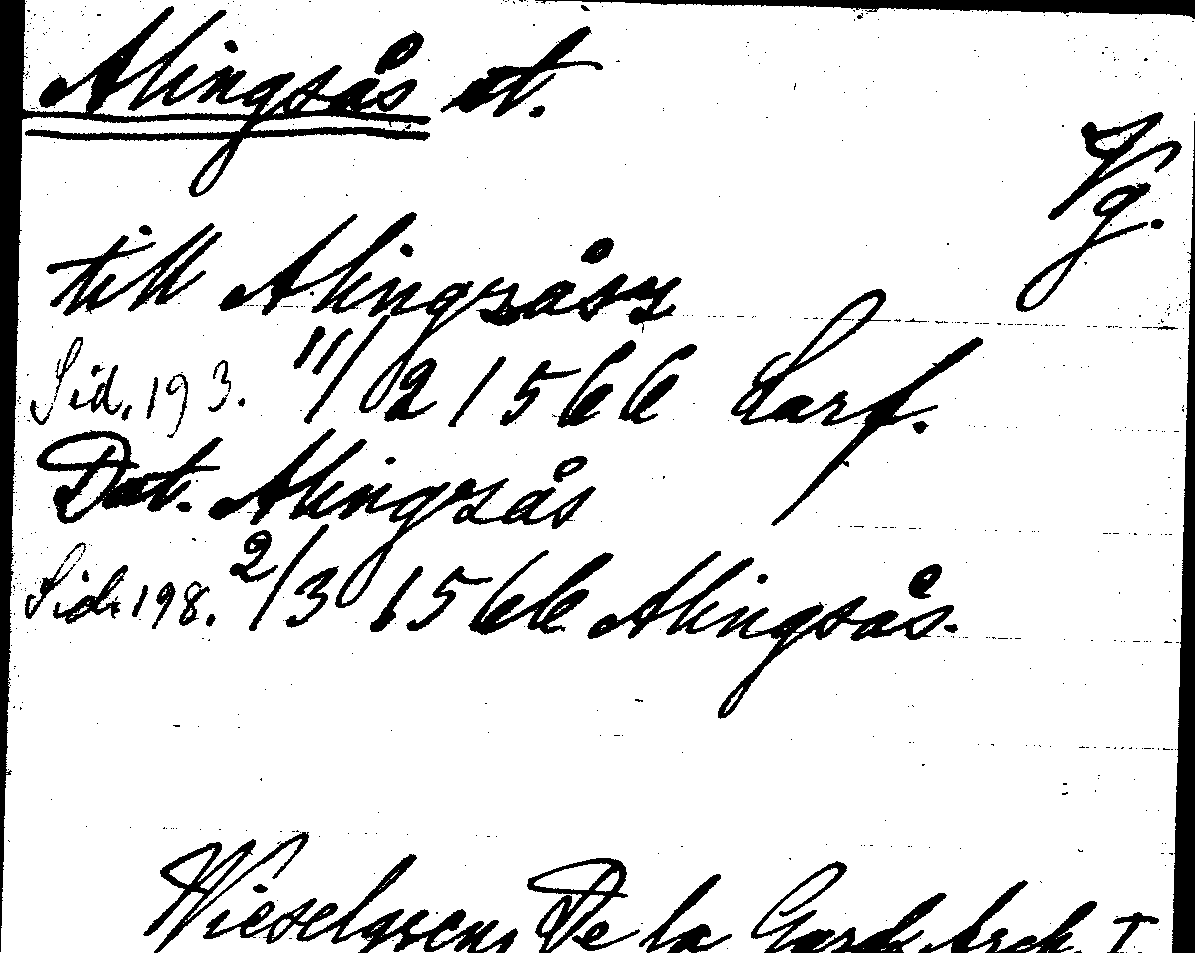 Alingsås st.
Vg.
till Alingsåsz
Sid. 193. 11/2 1566 Larf.
Dat. Alingsås
Sid. 198. 2/3 1566 Alingsås.
Wieselgren, De la Gard. Arch. I